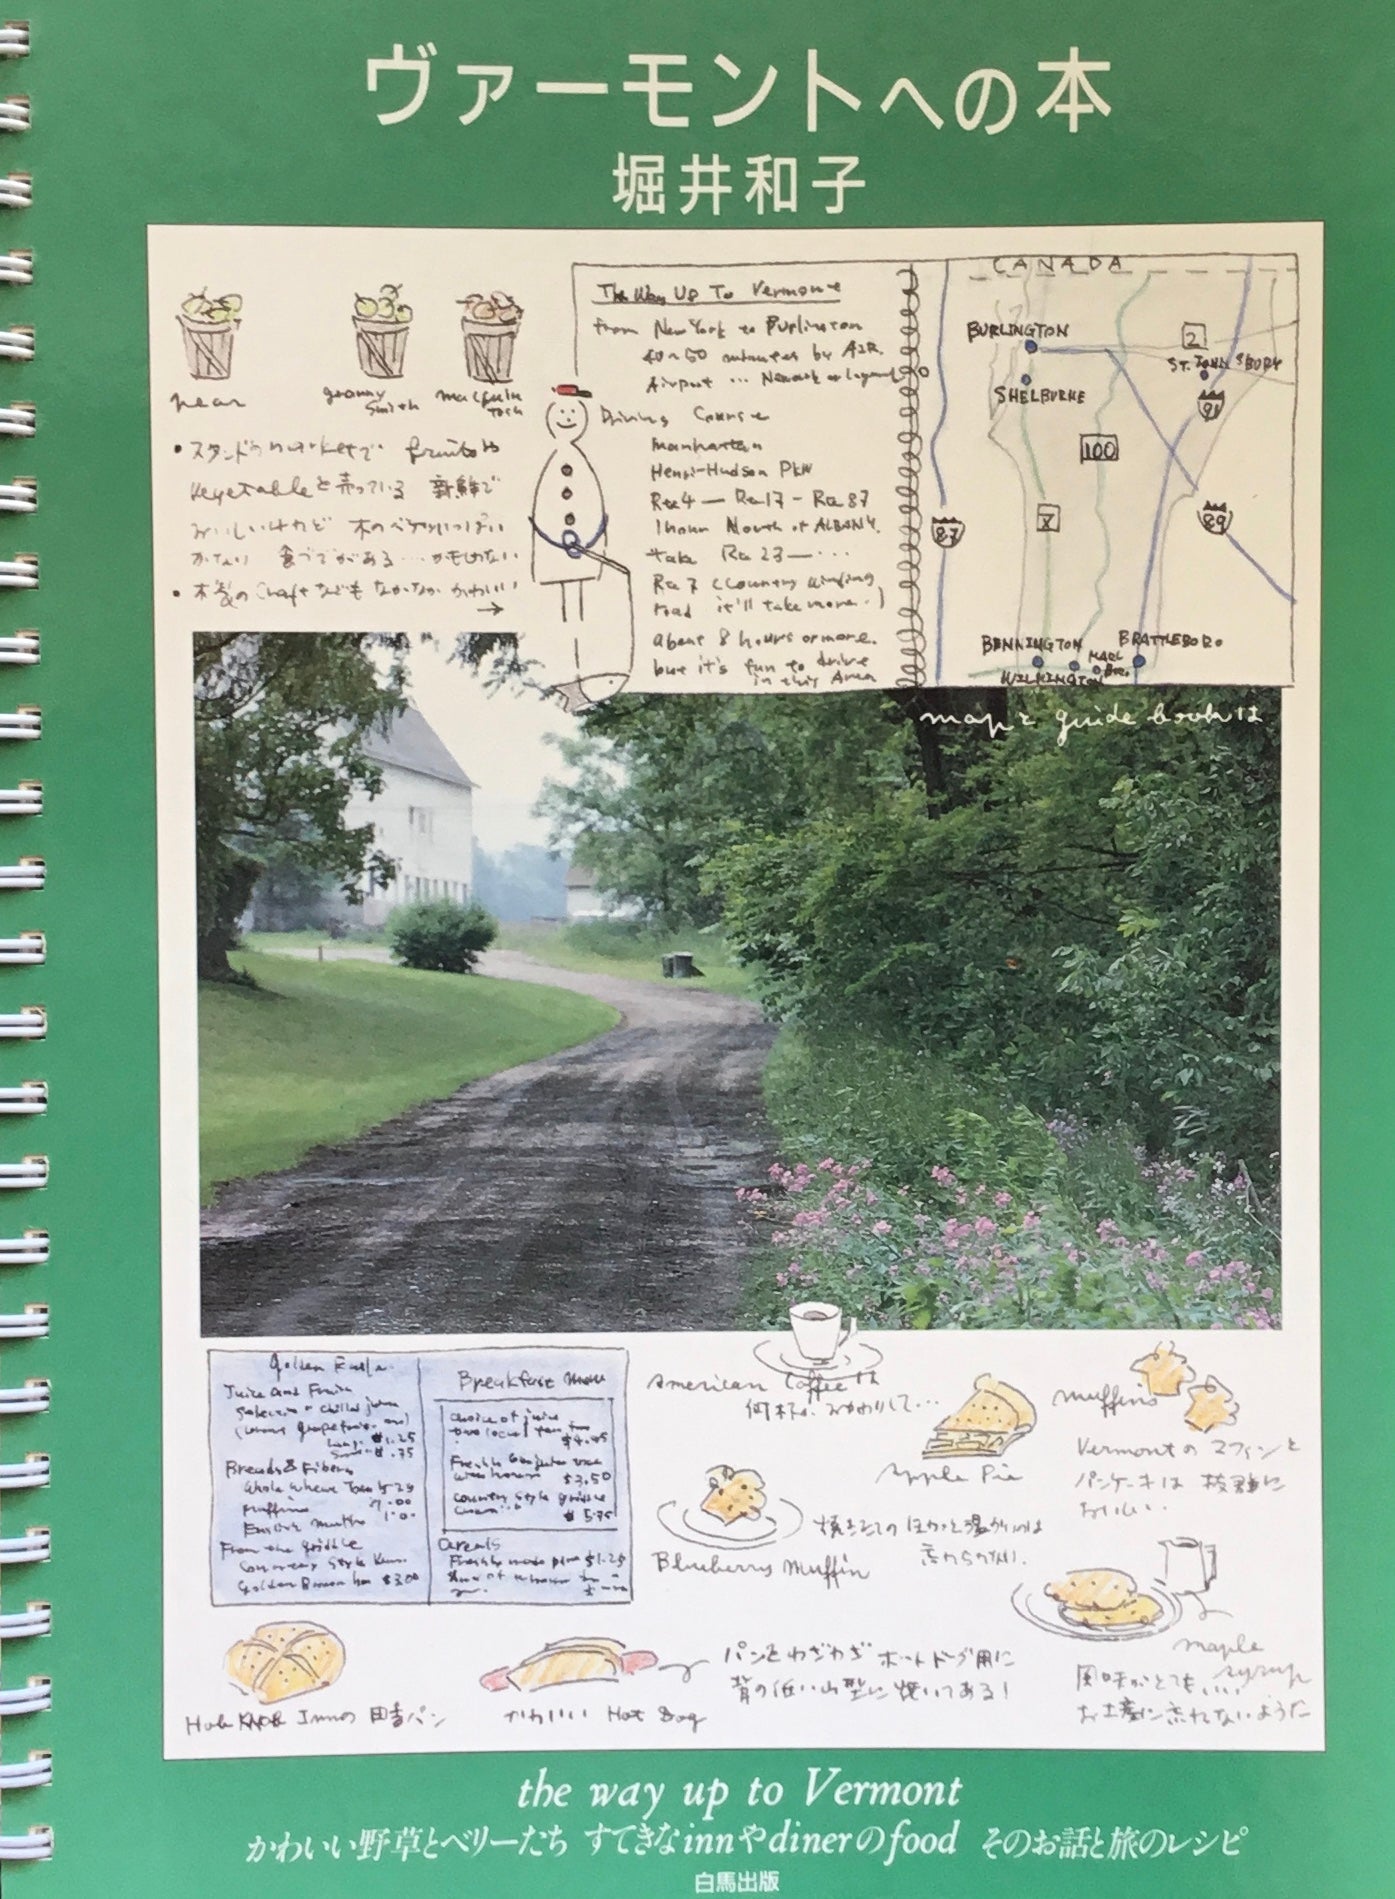 ヴァーモントへの本
堀井和子
pear
granny
Smith
スタンドのmarketで fruitsや
vegetableと売っている 新鮮で
おいしいけれど 木の いっぱい
かなり 食べでがある…かもしれない
木製のcraftなども なかなか かわいい
→
The Way Up To Vermont
from New York to Burlington
40~50 minutes by AIR.
Airport … Newark or
Driving Course
Manhattan
Henri-Hudson PkW
Rte4 — Rte17 - Rte87
1 hour North of ALBANY.
take Rte 23 — …
Rte 7 (country winding
road it'll take more.)
about 8 hours or more.
but it's fun to drive
in this Area
CANADA
BURLINGTON
2
SHELBURNE
91
100
7
87
89
BENNINGTON
BRATTLEBORO
WILMINGTON
mapとguide bookは
Juice and Fruits
$1.25
.75
Breads & Fibers
Muffins
From the griddle
Country Style
$3.00
Breakfast Menu
choice of juice
$3.50
country style griddle
$5.75
Cereals
$1.25
American Coffeeは
何杯か おかわりして…
Apple Pie
muffins
Vermontのマフィンと
パンケーキは 抜群に
おいしい.
Blueberry Muffin
焼きたての ほかっと温かいのは
maple
syrup
風味がとてもいい
お土産に忘れないように
Innの 田舎パン
かわいい Hot Dog
パンをわざわざ ホットドッグ用に
背の低い山型に 焼いてある!
the way up to Vermont
かわいい野草とベリーたち すてきなinnやdinerのfood そのお話と旅のレシピ
白馬出版